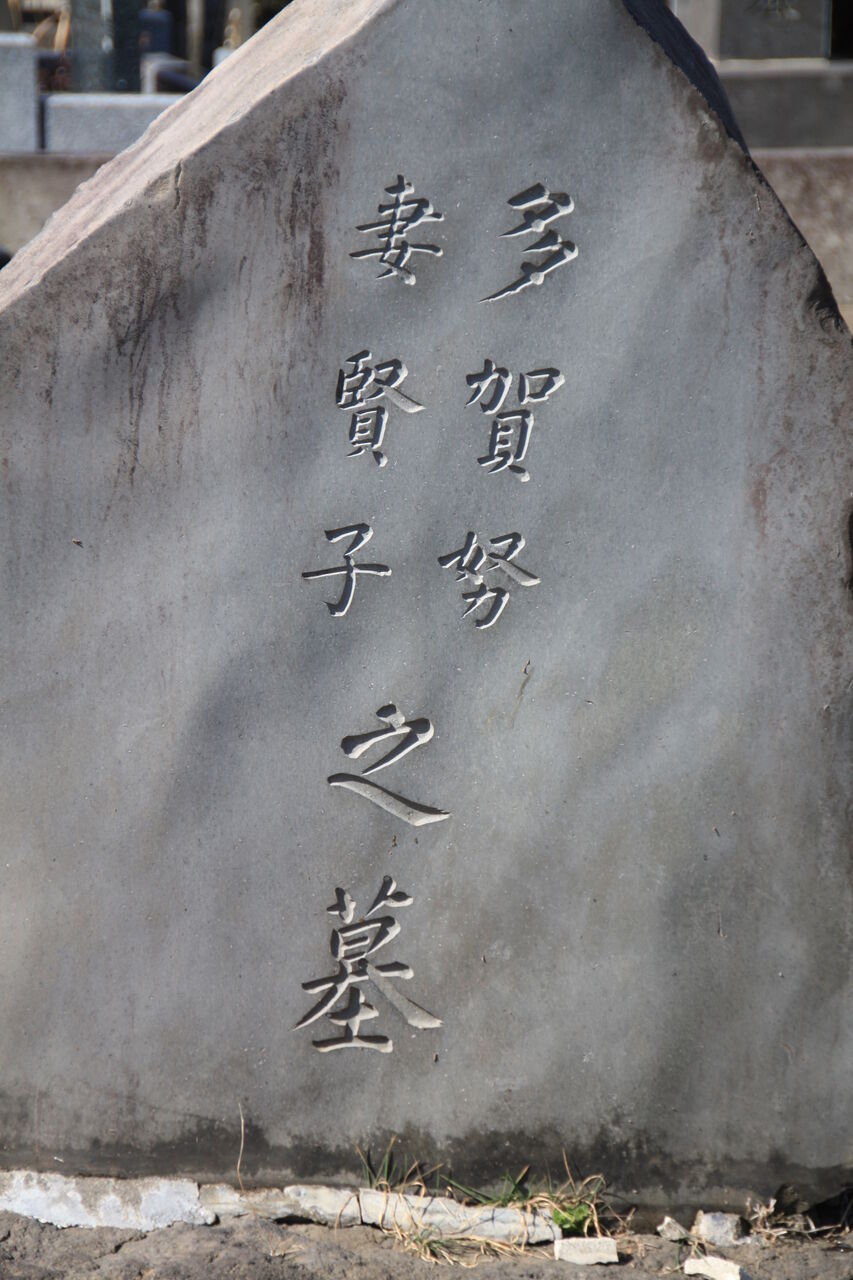 多賀努
妻賢子之墓